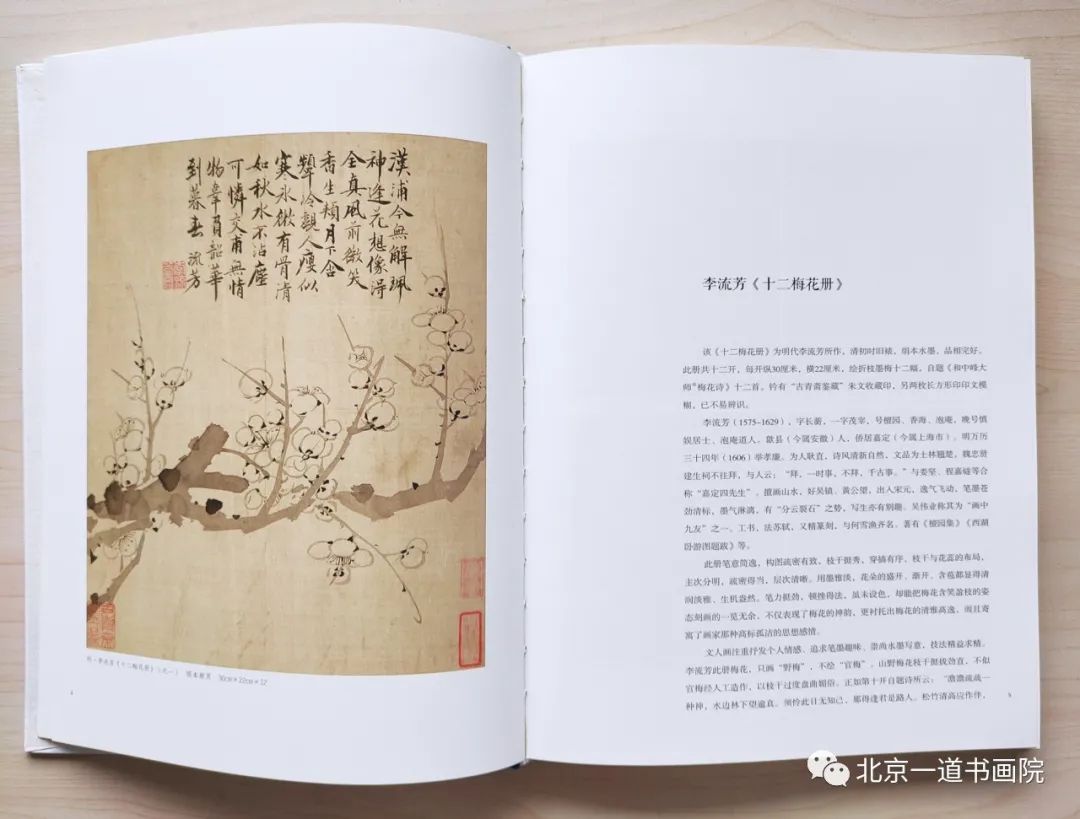 漢浦今無解珮
神逢花想像淂
全真風前微笑
香生頰月下含
顰冷親人瘦似
寒冰微有骨清
如秋水不沾塵
可憐交甫無情
物辜負韶華
到暮春 流芳
明·李流芳《十二梅花册》(之一) 绢本册页 30cm×22cm×12
4
李流芳《十二梅花册》
该《十二梅花册》为明代李流芳所作，清初时旧裱，绢本水墨，品相完好。
此册共十二开，每开纵30厘米，横22厘米，绘折枝墨梅十二幅，自题《和中峰大
师梅花诗》十二首，钤有“古青斋鉴藏”朱文收藏印，另两枚长方形印印文模
糊，已不易辨识。
李流芳（1575-1629），字长蘅，一字茂宰，号檀园、香海、泡庵，晚号慎
娱居士、泡庵道人，歙县（今属安徽）人，侨居嘉定（今属上海市）。明万历
三十四年（1606）举孝廉。为人耿直，诗风清新自然，文品为士林翘楚，魏忠贤
建生祠不往拜，与人云：“拜，一时事，不拜，千古事。”与娄坚、程嘉燧等合
称“嘉定四先生”。擅画山水，好吴镇、黄公望，出入宋元，逸气飞动，笔墨苍
劲清标，墨气淋漓，有“分云裂石”之势，写生亦有别趣。吴伟业称其为“画中
九友”之一。工书，法苏轼，又精篆刻，与何雪渔齐名。著有《檀园集》《西湖
卧游图题跋》等。
此册笔意简逸，构图疏密有致，枝干挺秀，穿插有序，枝干与花蕊的布局，
主次分明，疏密得当，层次清晰。用墨雅淡，花朵的盛开、渐开、含苞都显得清
润淡雅、生机盎然。笔力挺劲，顿挫得法，虽未设色，却能把梅花含笑盈枝的姿
态刻画的一览无余。不仅表现了梅花的神韵，更衬托出梅花的清雅高逸，而且寄
寓了画家那种高标孤洁的思想感情。
文人画注重抒发个人情感、追求笔墨趣味，崇尚水墨写意，技法精益求精。
李流芳此册梅花，只画“野梅”，不绘“官梅”，山野梅花枝干挺拔劲直，不似
官梅经人工造作，以枝干过度盘曲媚俗。正如第十开自题诗所云：“澹澹疏疏一
种神，水边林下望逾真。须怜此日无知己，那得逢君是路人。松竹清高应作伴，
5
北京一道书画院